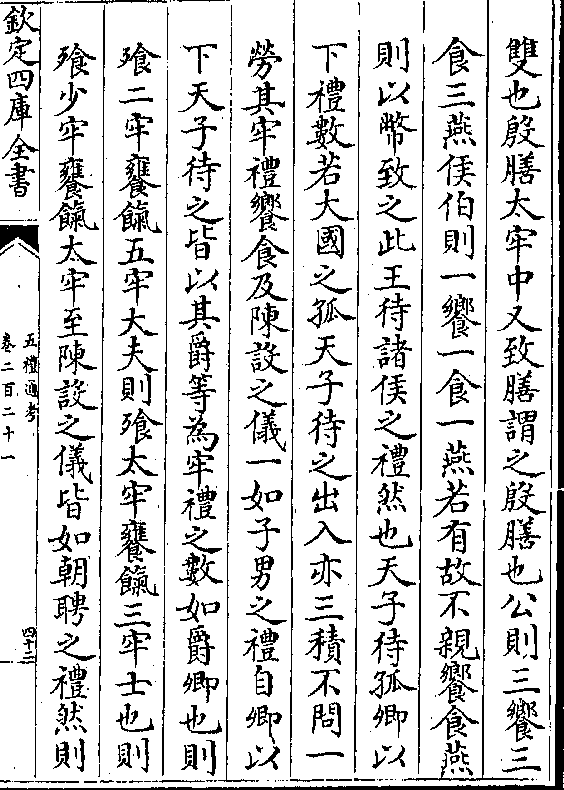 雙也殷膳太牢中又致膳謂之殷膳也公則三饗三
食三燕侯伯則一饗一食一燕若有故不親饗食燕
則以幣致之此王待諸侯之禮然也天子待孤卿以
下禮數若大國之孤天子待之出入亦三積不問一
勞其牢禮饗食及陳設之儀一如子男之禮自卿以
下天子待之皆以其爵等為牢禮之數如爵卿也則
飱二牢饔餼五牢大夫則飱太牢饔餼三牢士也則
飱少牢饔餼太牢至陳設之儀皆如朝聘之禮然則
欽定四庫全書
五禮通考
卷二百二十一
四十三